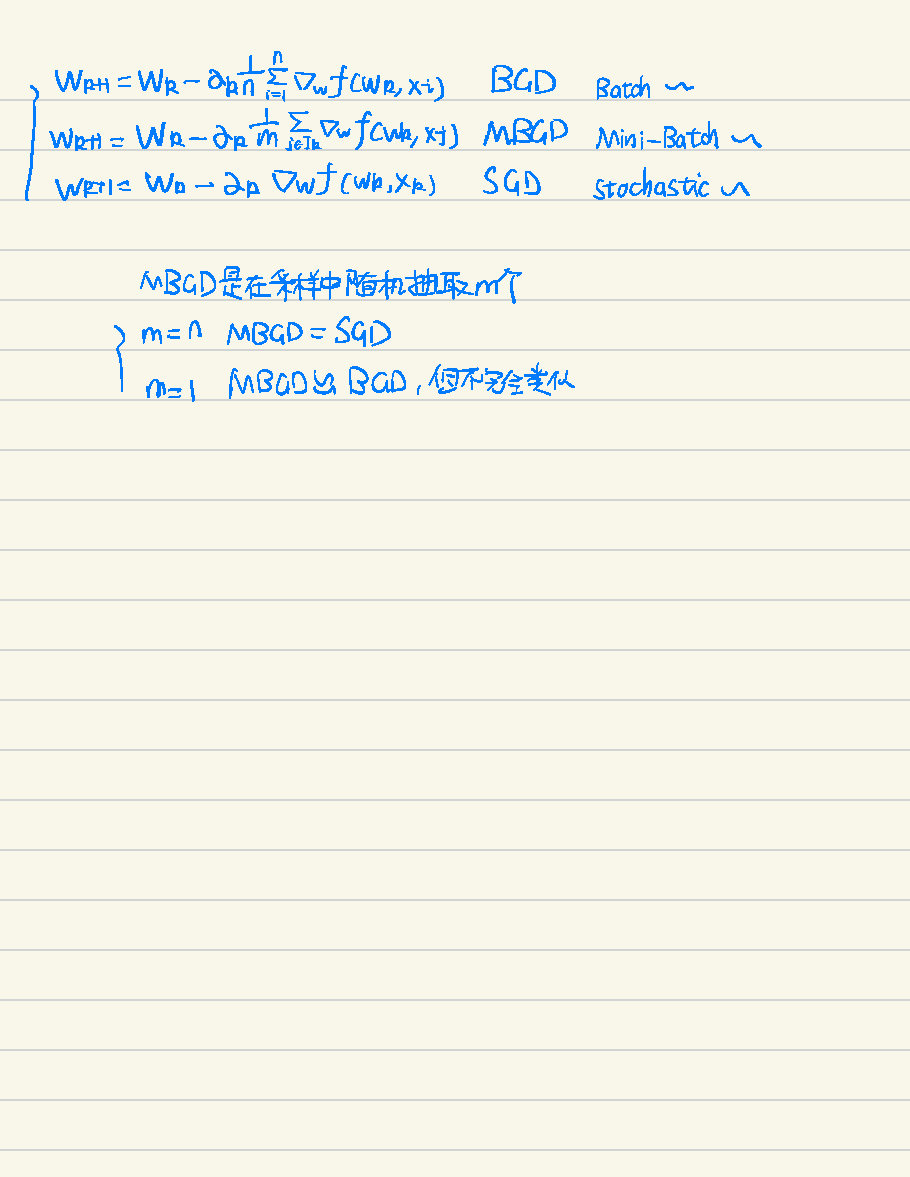 W_{k+1} = W_k - α_k \frac{1}{n} \sum_{i=1}^{n} ∇_w f(w_k, x_i) BGD Batch ~
W_{k+1} = W_k - α_k \frac{1}{m} \sum_{j∈I_k} ∇_w f(w_k, x_j) MBGD Mini-Batch ~
W_{k+1} = W_k - α_k ∇_w f(w_k, x_k) SGD Stochastic ~
MBGD是在采样中随机抽取m个
m=n MBGD = SGD
m=1 MBGD ≌ BGD, 但不完全类似